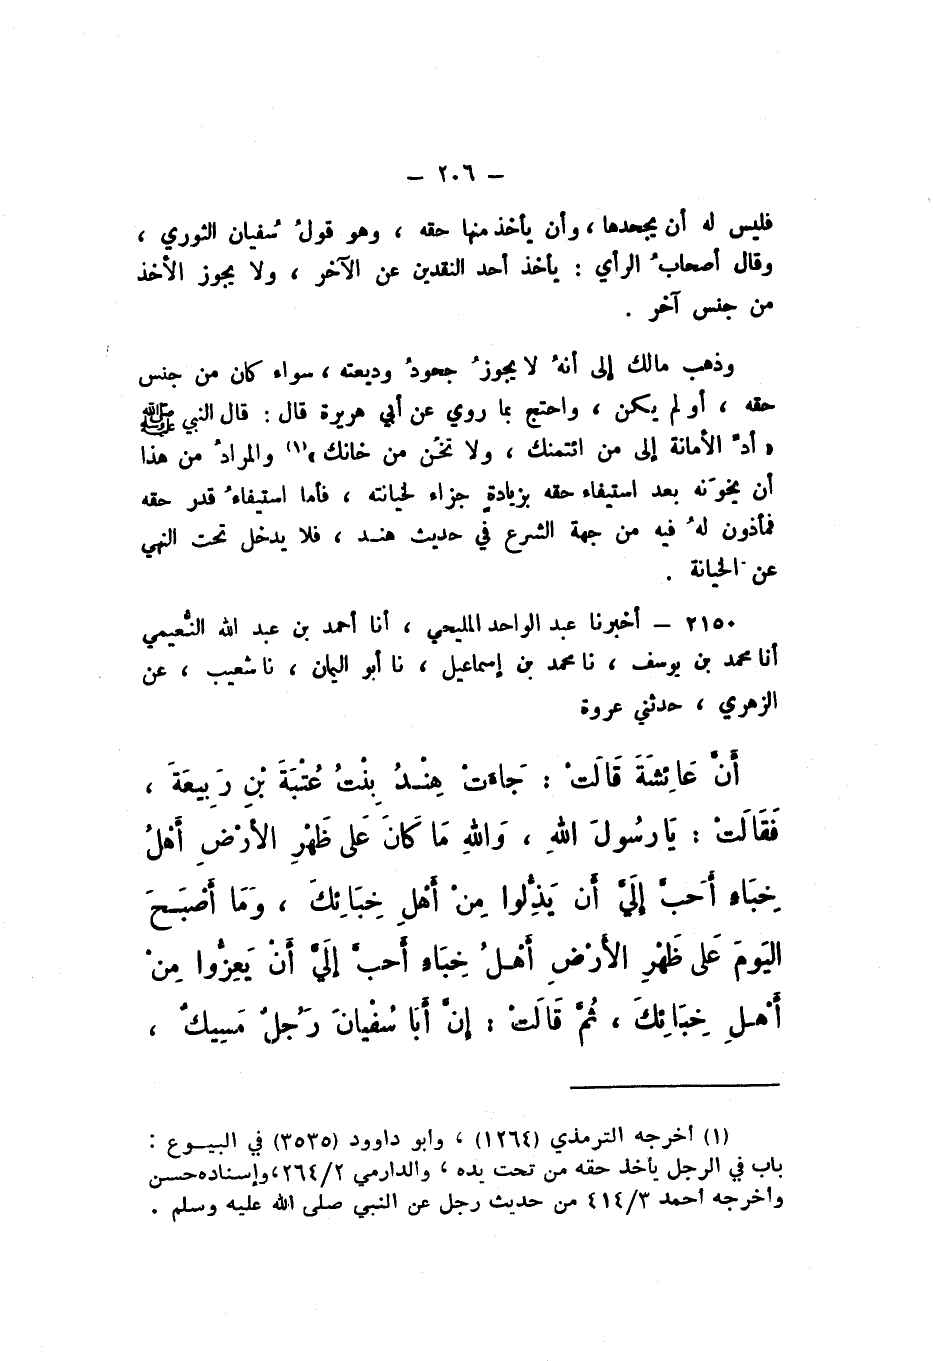 – ٢٠٦ –
فليس له أن يجحدها ، وأن يأخذ منها حقه ، وهو قولُ سُفيان الثوري ،
وقال أصحابُ الرأي : يأخذ أحد النقدين عن الآخر ، ولا يجوز الأخذ
من جنس آخر .
وذهب مالك إلى أنهُ لا يجوزُ جحودُ وديعته ، سواء كان من جنس
حقه ، أو لم يكن ، واحتج بما روي عن أبي هريرة قال : قال النبي ﷺ
« أدِّ الأمانة إلى من ائتمنك ، ولا تخُن من خانك »(١) والمرادُ من هذا
أن يخوّنه بعد استيفاء حقه بزيادةٍ جزاء لخيانته ، فأما استيفاءُ قدر حقه
فمأذون لهُ فيه من جهة الشرع في حديث هنـد ، فلا يدخل تحت النهي
عن الخيانة .
٢١٥٠ – أخبرنا عبد الواحد المليحي ، أنا أحمد بن عبد الله النُّعيمي
أنا محمد بن يوسف ، نا محمد بن إسماعيل ، نا أبو اليمان ، نا شعيب ، عن
الزهري ، حدثني عروة
أَنَّ عَائِشَةَ قَالَتْ : جَاءَتْ هِنْـدُ بِنْتُ عُتْبَةَ بْنِ رَبِيعَةَ ،
فَقَالَتْ : يَا رسُولَ اللهِ ، وَاللهِ مَا كَانَ عَلى ظَهْرِ الأرْضِ أَهْلُ
خِبَاءِ أَحَبَّ إِلَيَّ أَن يَذِلُّوا مِنْ أَهْلِ خِبَائِكَ ، وَمَا أَصْبَـحَ
اليَومَ عَلى ظَهْرِ الأَرْضِ أَهْـلُ خِبَاءِ أَحبَّ إِلَيَّ أَنْ يَعِزُّوا مِنْ
أَهْـلِ خِبَائِكَ ، ثُمَّ قَالَتْ : إِنَّ أَبَا سُفْيانَ رَجُلٌ مَسِيكٌ ،
(١) أخرجه الترمذي (١٢٦٤) ، وأبو داوود (٣٥٣٥) في البيـوع :
باب في الرجل يأخذ حقه من تحت يده ، والدارمي ٢٦٤/٢ ، وإسناده حسن
وأخرجه أحمد ٤١٤/٣ من حديث رجل عن النبي صلى الله عليه وسلم .